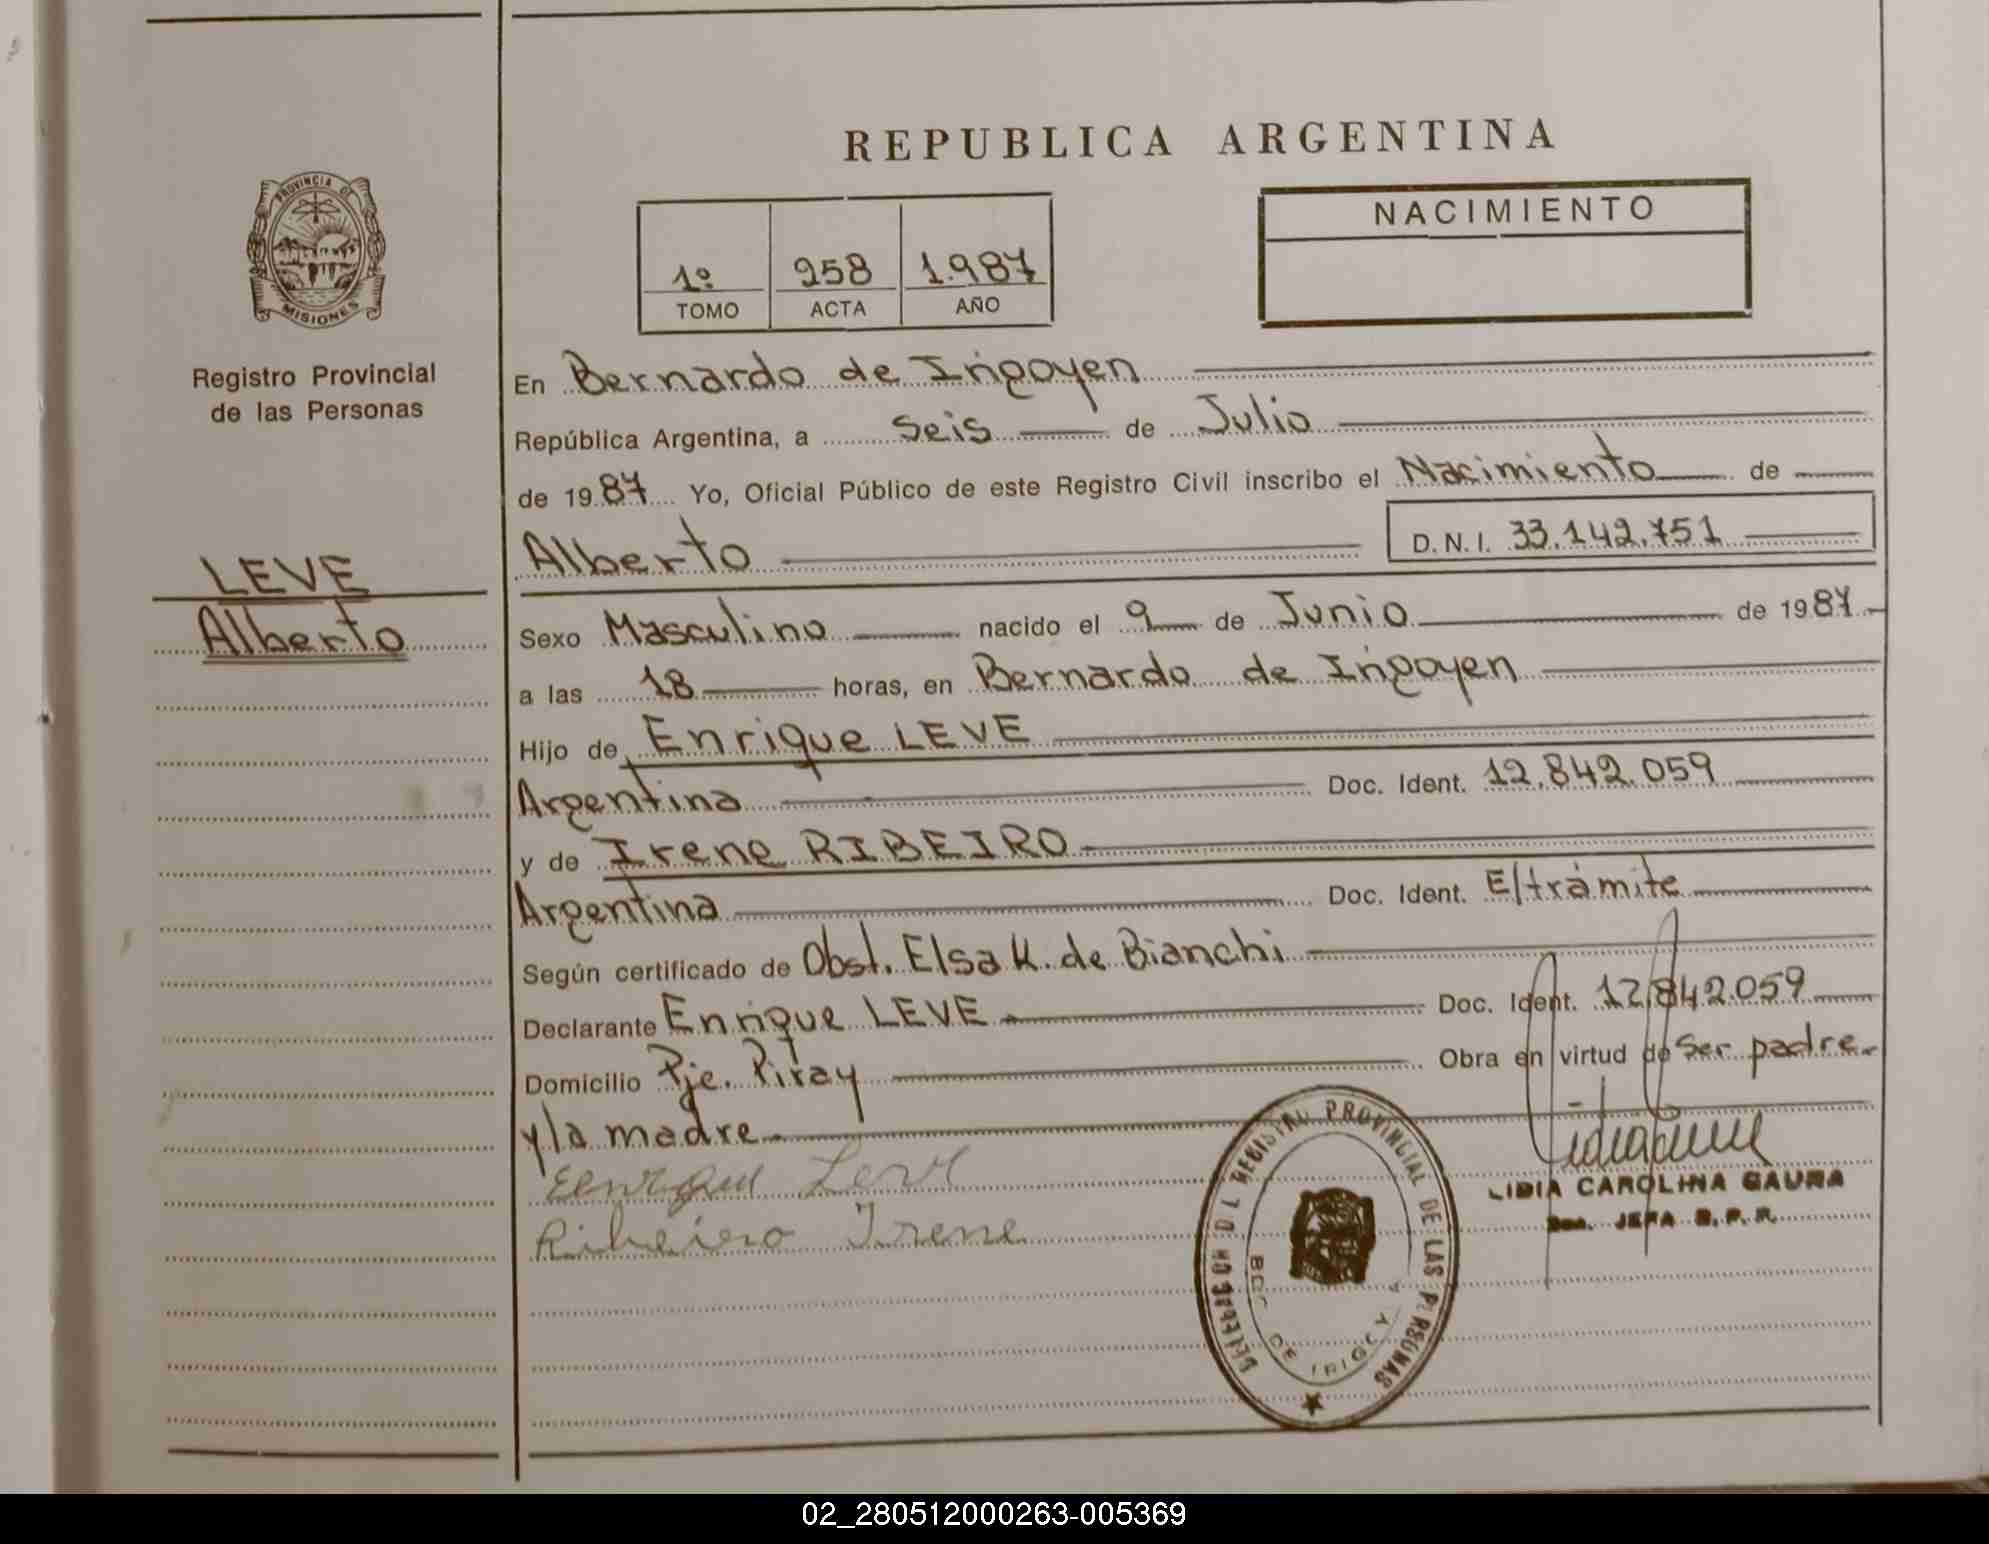 REPUBLICA ARGENTINA
PROVINCIA DE
MISIONES
Registro Provincial
de las Personas
NACIMIENTO
1º 258 1.987
TOMO ACTA AÑO
En Bernardo de Irigoyen
República Argentina, a seis de Julio
de 1987 Yo, Oficial Público de este Registro Civil inscribo el Nacimiento de
Alberto D.N.I. 33.142.751
LEVE
Alberto
Sexo Masculino nacido el 9 de Junio de 1987
a las 18 horas, en Bernardo de Irigoyen
Hijo de Enrique LEVE
Argentina Doc. Ident. 12.842.059
y de Irene RIBEIRO
Argentina Doc. Ident. E/trámite
Según certificado de Obst. Elsa K. de Bianchi
Declarante Enrique LEVE Doc. Ident. 12.842.059
Domicilio Pje. Piray Obra en virtud de Ser padre
y/la madre
Leve
Ribeiro Irene
REGISTRO PROVINCIAL DE LAS PERSONAS
LIDIA CAROLINA GAUNA
JEFA R.P.P.
02_280512000263-005369